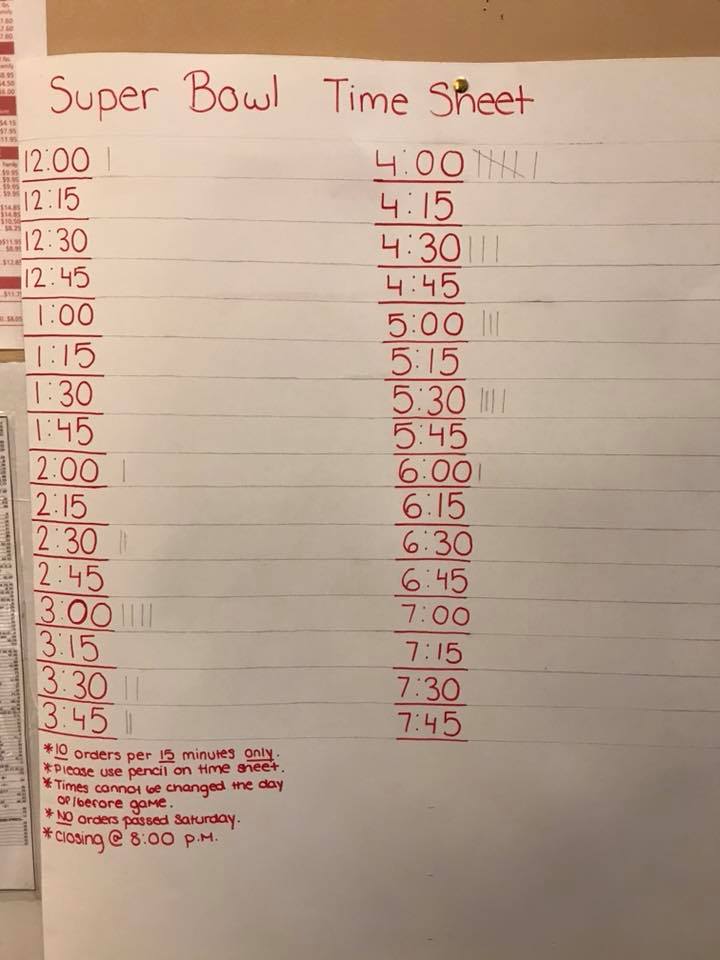 Super Bowl Time Sheet
12:00 |
12:15
12:30
12:45
1:00
1:15
1:30
1:45
2:00 |
2:15
2:30 ||
2:45
3:00 ||||
3:15
3:30 ||
3:45 ||
*10 orders per 15 minutes only.
*Please use pencil on time sheet.
*Times cannot be changed the day
of/before game.
*NO orders passed Saturday.
*Closing @ 8:00 p.m.
4:00 |||| ||
4:15
4:30 |||
4:45
5:00 |||
5:15
5:30 ||||
5:45
6:00 |
6:15
6:30
6:45
7:00
7:15
7:30
7:45